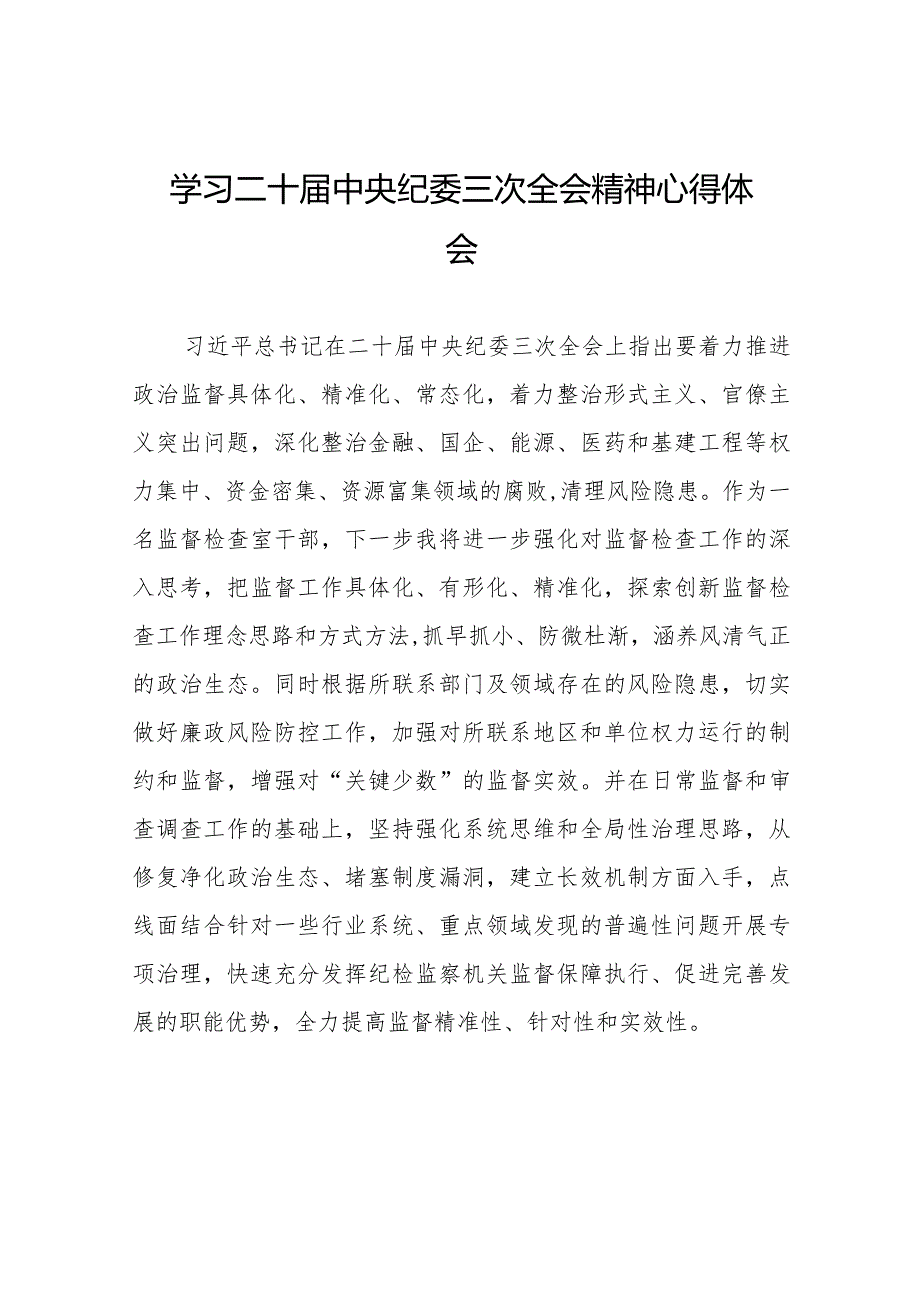 学习二十届中央纪委三次全会精神心得体
会
习近平总书记在二十届中央纪委三次全会上指出要着力推进
政治监督具体化、精准化、常态化，着力整治形式主义、官僚主
义突出问题，深化整治金融、国企、能源、医药和基建工程等权
力集中、资金密集、资源富集领域的腐败,清理风险隐患。作为一
名监督检查室干部，下一步我将进一步强化对监督检查工作的深
入思考，把监督工作具体化、有形化、精准化，探索创新监督检
查工作理念思路和方式方法,抓早抓小、防微杜渐，涵养风清气正
的政治生态。同时根据所联系部门及领域存在的风险隐患，切实
做好廉政风险防控工作，加强对所联系地区和单位权力运行的制
约和监督，增强对“关键少数”的监督实效。并在日常监督和审
查调查工作的基础上，坚持强化系统思维和全局性治理思路，从
修复净化政治生态、堵塞制度漏洞，建立长效机制方面入手，点
线面结合针对一些行业系统、重点领域发现的普遍性问题开展专
项治理，快速充分发挥纪检监察机关监督保障执行、促进完善发
展的职能优势，全力提高监督精准性、针对性和实效性。